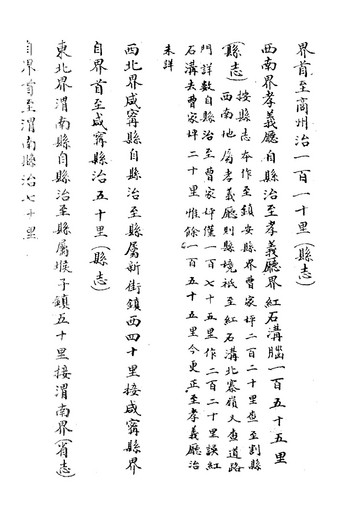 界首至商州治一百一十里(縣志)
西南界孝義廳自縣治至孝義廳界紅石溝腦一百五十五里
(縣志) 按縣志本作至鎮安縣界曹家坪二百二十里查至割縣
西南地屬孝義廳則縣境祇至紅石溝北秦嶺又查道路
門詳數自縣治至曹家坪僅一百七十五里作二百二十里誤紅
石溝去曹家坪二十里惟餘一百五十五里今更正至孝義廳治
未詳
西北界咸甯縣自縣治至縣屬新街鎮西四十里接咸甯縣界
自界首至咸甯縣治五十里(縣志)
東北界渭南縣自縣治至縣屬堠子鎮五十里接渭南界(省志)
自界首至渭南縣治七十里